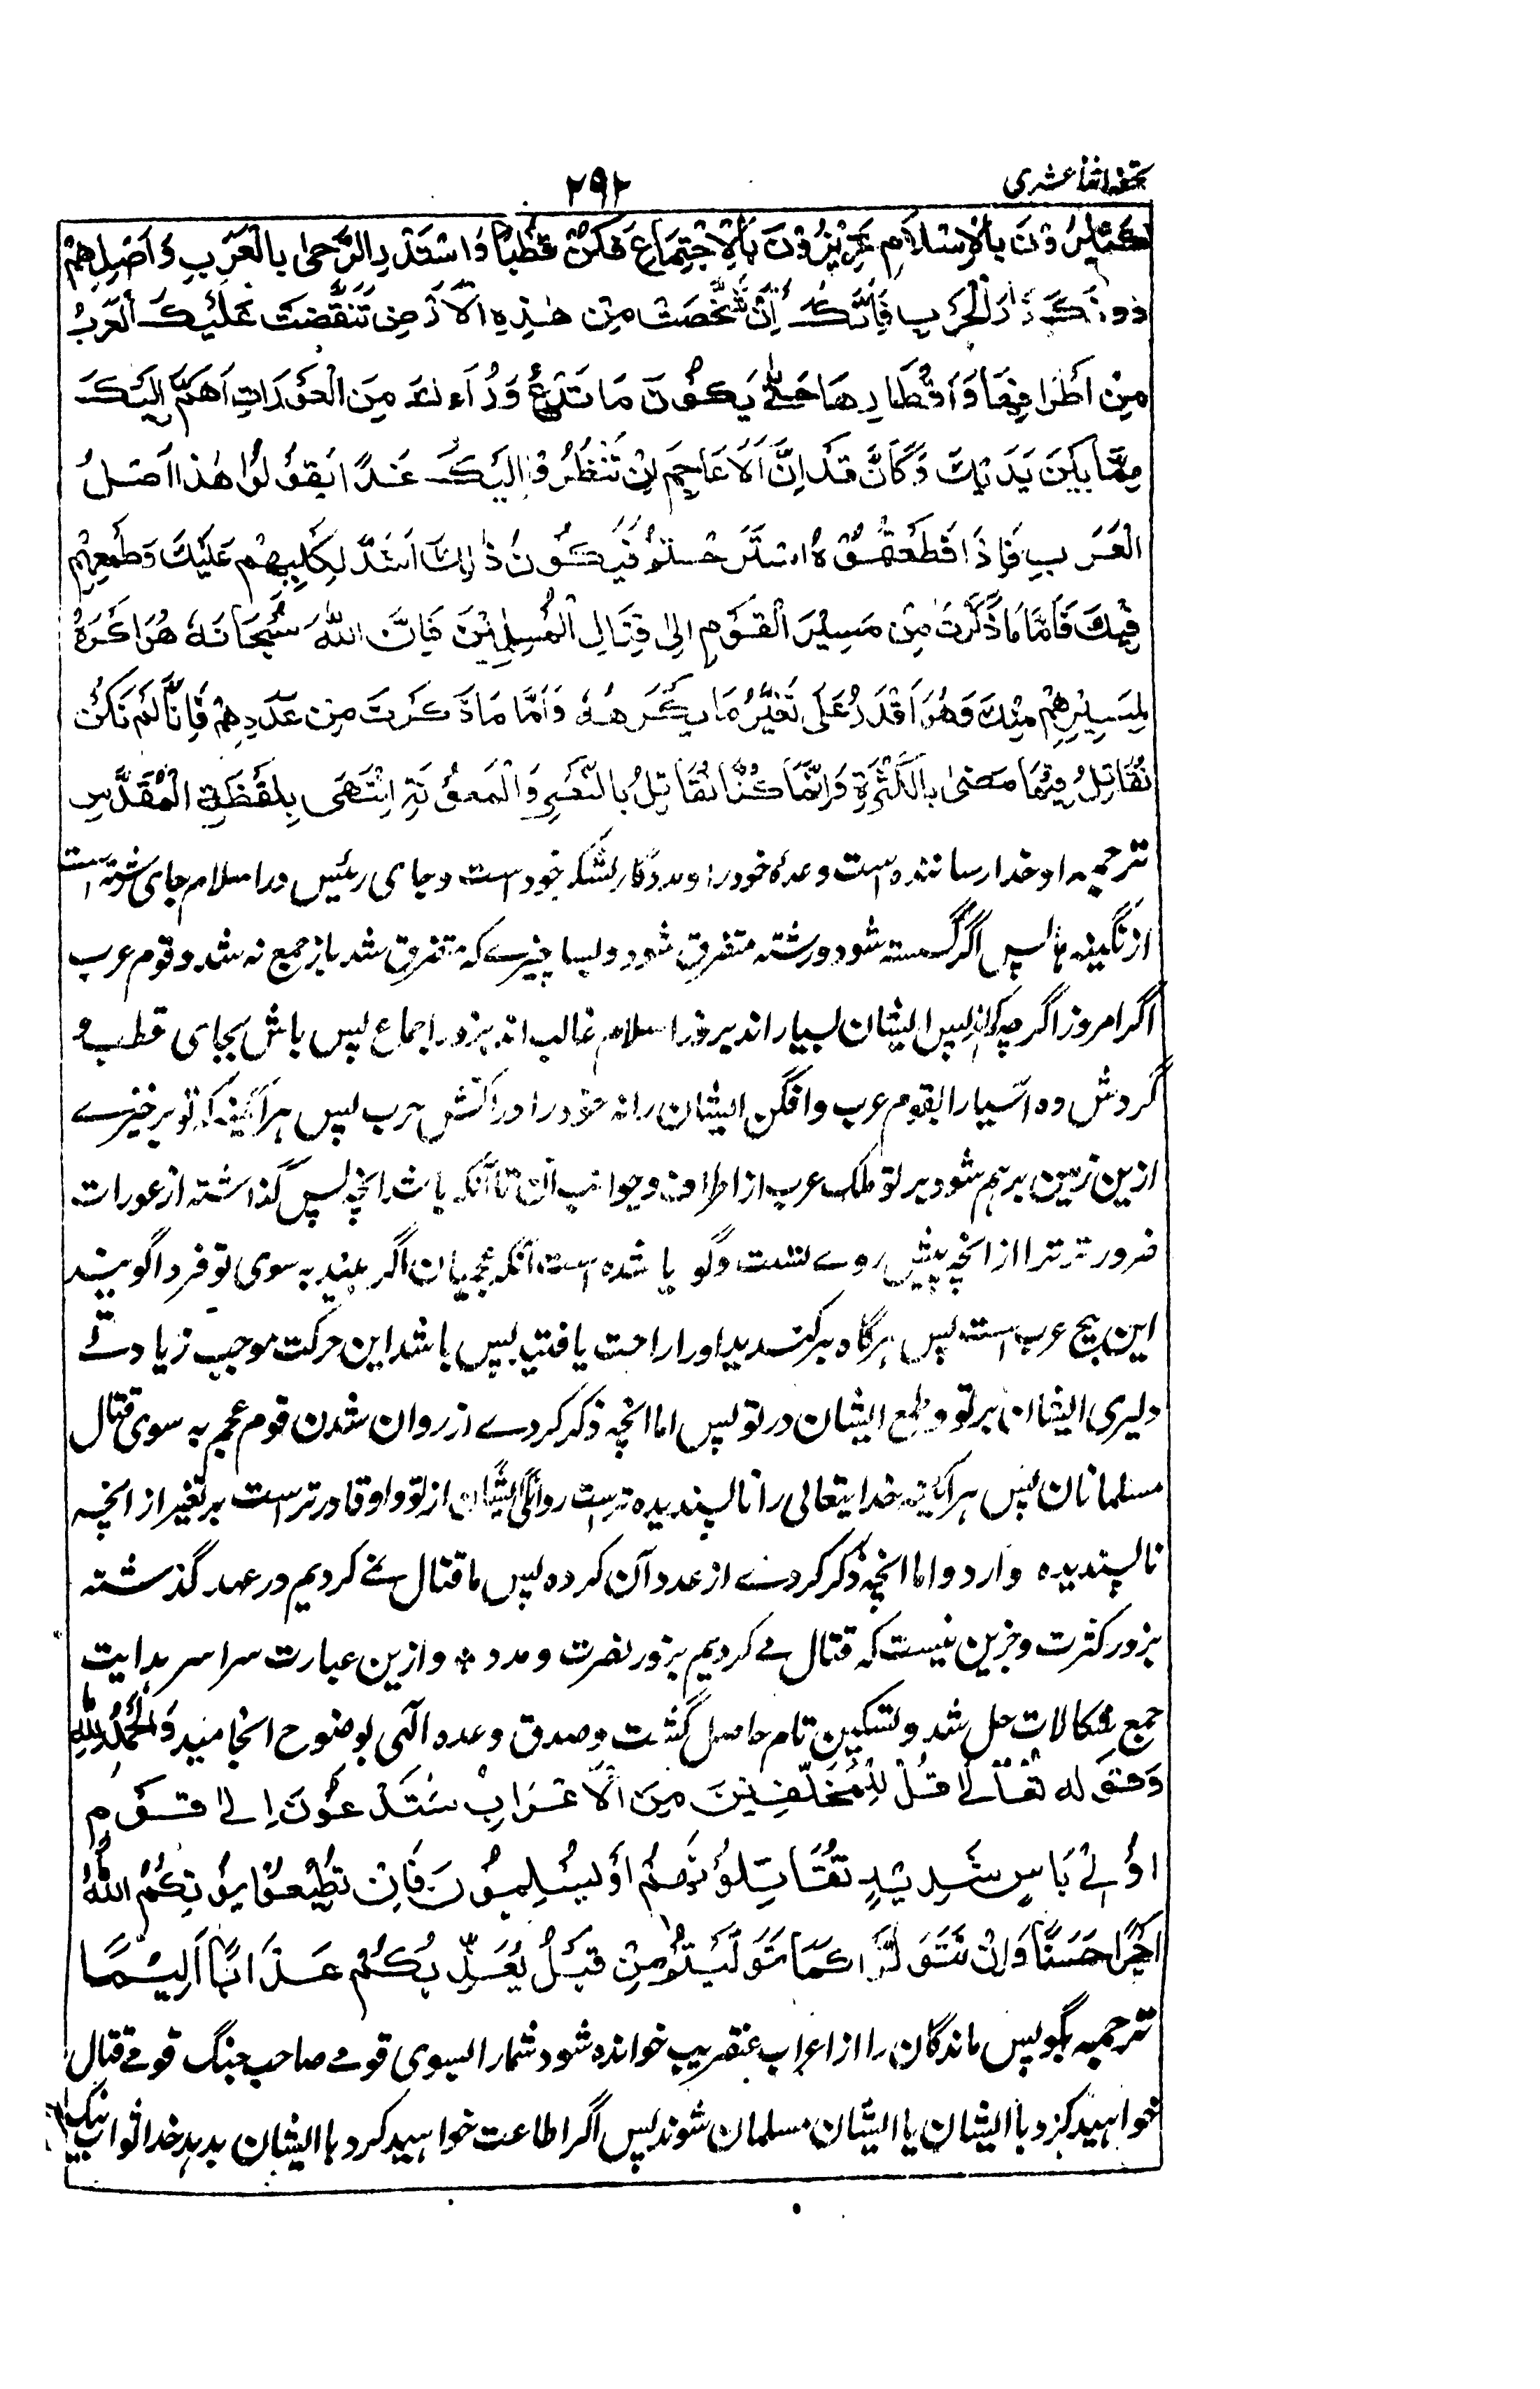 تحفہ اثنا عشری
۲۹۲
كَثِيْرُوْنَ بِالْاِسْلَامِ عَزِيْزُوْنَ بِالْاِجْتِمَاعِ فَكُنْ قُطْبًا وَاسْتَدِرِ الرَّحٰى بِالْعَرَبِ وَاَصْلِهِمْ
دُوْنَكَ نَارَ الْحَرْبِ فَاِنَّكَ اِنْ شَخَصْتَ مِنْ هٰذِهِ الْاَرْضِ تَنَقَّضَتْ عَلَيْكَ الْعَرَبُ
مِنْ اَطْرَافِهَا وَاَقْطَارِهَا حَتّٰى يَكُوْنَ مَا تَدَعُ وَرَاءَكَ مِنَ الْعَوْرَاتِ اَهَمَّ اِلَيْكَ
مِمَّا بَيْنَ يَدَيْكَ وَكَاَنَّ قَدْ اِنَّ الْاَعَاجِمَ اِنْ تَنْظُرُوْا اِلَيْكَ غَدًا يَقُوْلُوْا هٰذَا اَصْلُ
الْعَرَبِ فَاِذَا قَطَعْتُمُوْهُ اسْتَرَحْتُمْ فَيَكُوْنُ ذٰلِكَ اَشَدَّ لِكَلَبِهِمْ عَلَيْكَ وَطَمَعِهِمْ
فِيْكَ فَاَمَّا مَا ذَكَرْتَ مِنْ مَسِيْرِ الْقَوْمِ اِلٰى قِتَالِ الْمُسْلِمِيْنَ فَاِنَّ اللّٰهَ سُبْحَانَهٗ هُوَ اَكْرَهُ
لِمَسِيْرِهِمْ مِنْكَ وَهُوَ اَقْدَرُ عَلٰى تَغَيُّرِ مَا يَكْرَهُهٗ وَاَمَّا مَا ذَكَرْتَ مِنْ عَدَدِهِمْ فَاِنَّا لَمْ نَكُنْ
نُقَاتِلُ فِيْمَا مَضٰى بِالْكَثْرَةِ وَاِنَّمَا كُنَّا نُقَاتِلُ بِالنَّصْرِ وَالْمَعُوْنَةِ اِنْتَهٰى بِلَفْظِهِ الْمُقَدَّسِ
ترجمہ او خدا رسانندہ است وعدۂ خود را و مددگار لشکر خود است و جای رئیس در اسلام جای رشتہ است
از نگینہ ہا پس اگر گسستہ شود رشتہ متفرق شود و بسا چیزے کہ متفرق شد باز جمع نہ شد و قوم عرب
اگر امروز اگرچہ کم اند پس ایشان بسیار اند بزور اسلام غالب اند بزور اجماع پس باش بجای قطب و
گردش دہ آسیا را بقوم عرب و افگن ایشان را نہ خود را در آتش حرب پس ہر آئینہ کہ تو برخیزے
ازین زمین برہم شود بر تو ملک عرب از اطراف و جوانب آن تا آنکہ باشد انچہ پس گذاشتہ از عورات
ضرورتر ترا از انچہ پیش روے تست و گویا شدہ است آنکہ عجمیان اگر بینند بہ سوی تو فردا گویند
این بیخ عرب است پس ہرگاہ برکندید او را راحت یافتید پس باشد این حرکت موجب زیادتے
دلیری ایشان بر تو و طمع ایشان در تو پس اما انچہ ذکر کردے از روان شدن قوم عجم بہ سوی قتال
مسلمانان پس ہر آئینہ خدا یتعالی را ناپسندیدہ تر است روانگی ایشان از تو و او قادر تر است بر تغیر از انچہ
ناپسندیدہ دارد و اما انچہ ذکر کردے از عدد آن کردہ پس ما قتال نمے کردیم در عہد گذشتہ
بزور کثرت و جزین نیست کہ قتال مے کردیم بزور نصرت و مدد ۞ و ازین عبارت سراسر ہدایت
جمع شکالات حل شد و تسکین تام حاصل گشت و صدق وعدہ الٰہی بوضوح انجامید وَالْحَمْدُ لِلّٰهِ
وَقَوْلُه تَعَالٰى قُلْ لِلْمُخَلَّفِيْنَ مِنَ الْاَعْرَابِ سَتُدْعَوْنَ اِلٰى قَوْمٍ
اُولِىْ بَأْسٍ شَدِيْدٍ تُقَاتِلُوْنَهُمْ اَوْ يُسْلِمُوْنَ فَاِنْ تُطِيْعُوْا يُؤْتِكُمُ اللّٰهُ
اَجْرًا حَسَنًا وَاِنْ تَتَوَلَّوْا كَمَا تَوَلَّيْتُمْ مِنْ قَبْلُ يُعَذِّبْكُمْ عَذَابًا اَلِيْمًا
ترجمہ بگو پس ماندگان را از اعراب عنقریب خواندہ شود شما را بسوی قومے صاحب جنگ قومے قتال
خواہید کرد با ایشان یا ایشان مسلمان شوند پس اگر اطاعت خواہید کرد با ایشان بدہد خدا ثواب نیک